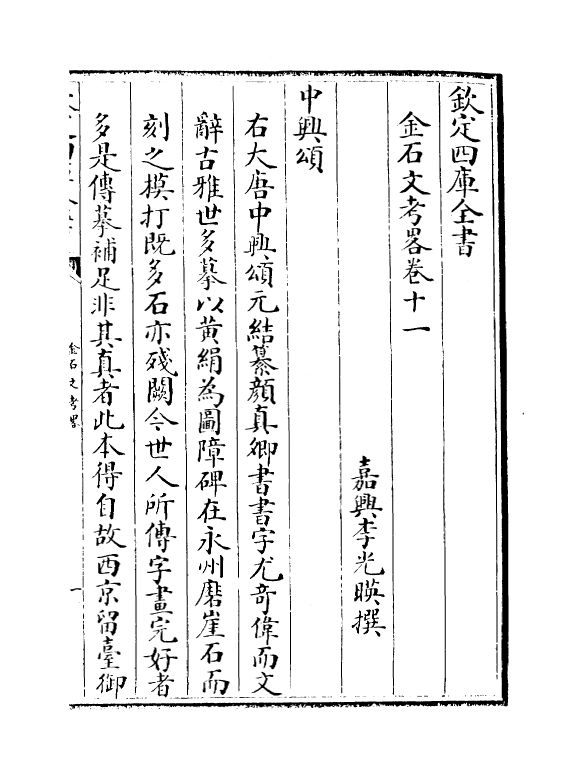 欽定四庫全書
金石文考畧卷十一
嘉興李光暎撰
中興頌
右大唐中興頌元結纂顏真卿書書字尤奇偉而文
辭古雅世多摹以黄絹為圖障碑在永州磨崖石而
刻之模打既多石亦殘闕今世人所傳字畫完好者
多是傳摹補足非其真者此本得自故西京留臺御
金石文考畧
一